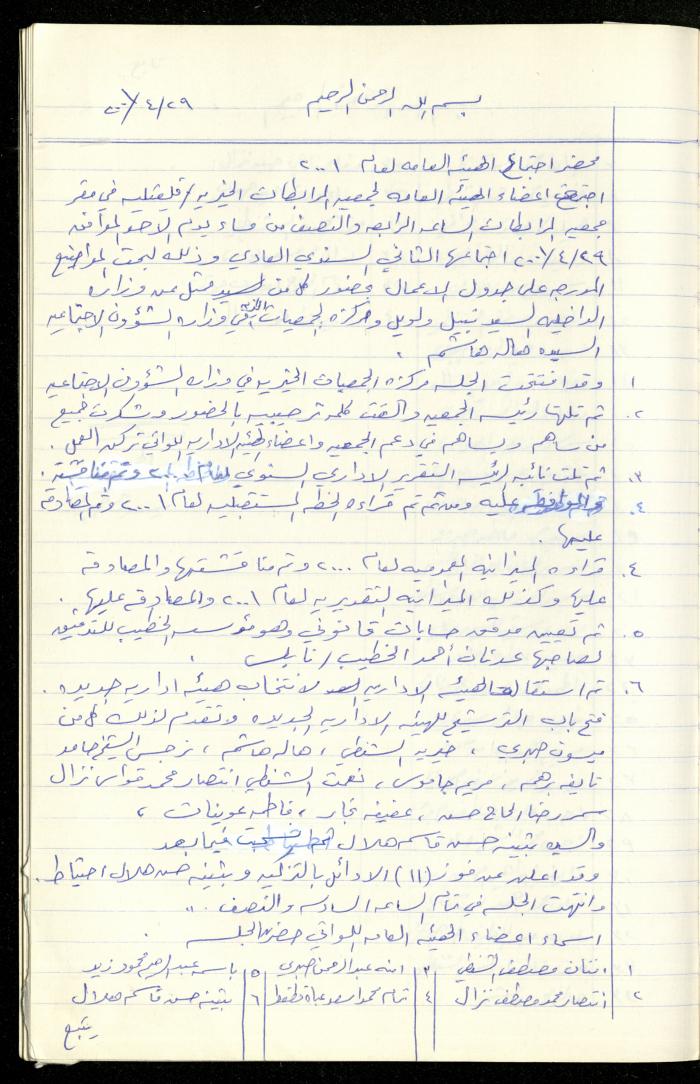 بسم الله الرحمن الرحيم ٢٠٠١/٤/٢٩
محضر اجتماع الهيئه العامه لعام ٢٠٠١
اجتمع اعضاء الهيئه العامه لجمعيه المرابطات الخيريه / قلقيليه في مقر
جمعيه المرابطات الساعه الرابعه والنصف من مساء يوم الاحد الموافق
٢٠٠١/٤/٢٩ اجتماعها الثاني السنوي العادي وذلك لبحث المواضيع
المدرجه على جدول الاعمال بحضور كل من السيد ممثل عن وزاره
الداخليه السيد نبيل ولويل ومركزه الجمعيات الخيريه في وزاره الشؤون الاجتماعيه
السيده هاله هاشم .
١ وقد افتتحت الجلسه مركزه الجمعيات الخيريه في وزاره الشؤون الاجتماعيه
٢. ثم تلتها رئيسه الجمعيه والقت كلمه ترحيبيه بالحضور وشكرت جميع
من ساهم ويساهم في دعم الجمعيه واعضاء الهيئه الاداريه اللواتي تركن العمل .
٣. ثم تلت نائبه الرئيسه التقرير الاداري السنوي لعام ٢٠٠٠ وتم مناقشته .
٤. تم الموافقه عليه ومن ثم تم قراءه الخطه المستقبليه لعام ٢٠٠١ وتم المصادقه
عليها .
٤. قراءه الميزانيه العموميه لعام ٢٠٠٠ وتم مناقشتها والمصادقه
عليها وكذلك الميزانيه التقديريه لعام ٢٠٠١ والمصادقه عليها .
٥. تم تعيين مدقق حسابات قانوني وهو مؤسسه الخطيب للتدقيق
لصاحبها عدنان أحمد الخطيب / نابلس .
٦. تم استقاله الهيئه الاداريه لانتخاب هيئه اداريه جديده .
فتح باب الترشيح للهيئه الاداريه الجديده وتقدم لذلك كل من
ميسون صبري ، خيريه الشنطي ، هاله هاشم ، نرجس الشيخ حامد
نايفه برهمه ، مريم جاموس ، نعمت الشنطي انتصار محمد قواس نزال
سمر رضا الحاج حسن ، عفيفه نجار ، فاطمه عوينات ،
والسيده بثينه حسن قاسم هلال فيما بعد
وقد اعلن عن فوز (١١) الاوائل بالتزكيه وبثينه حسن هلال احتياط .
وانتهت الجلسه في تمام الساعه السادسه والنصف .
اسماء اعضاء الهيئه العامه اللواتي حضرن الجلسه .
١ افتنان مصطفى الشنطي ٣ امنه عبد الرحمن صبري ٥ باسمه عبد الرحيم محمود زيد
٢ انتصار محمد مصطفى نزال ٤ تمام محمد اسعد عباة قطقط ٦ بثينه حسن قاسم هلال
يتبع